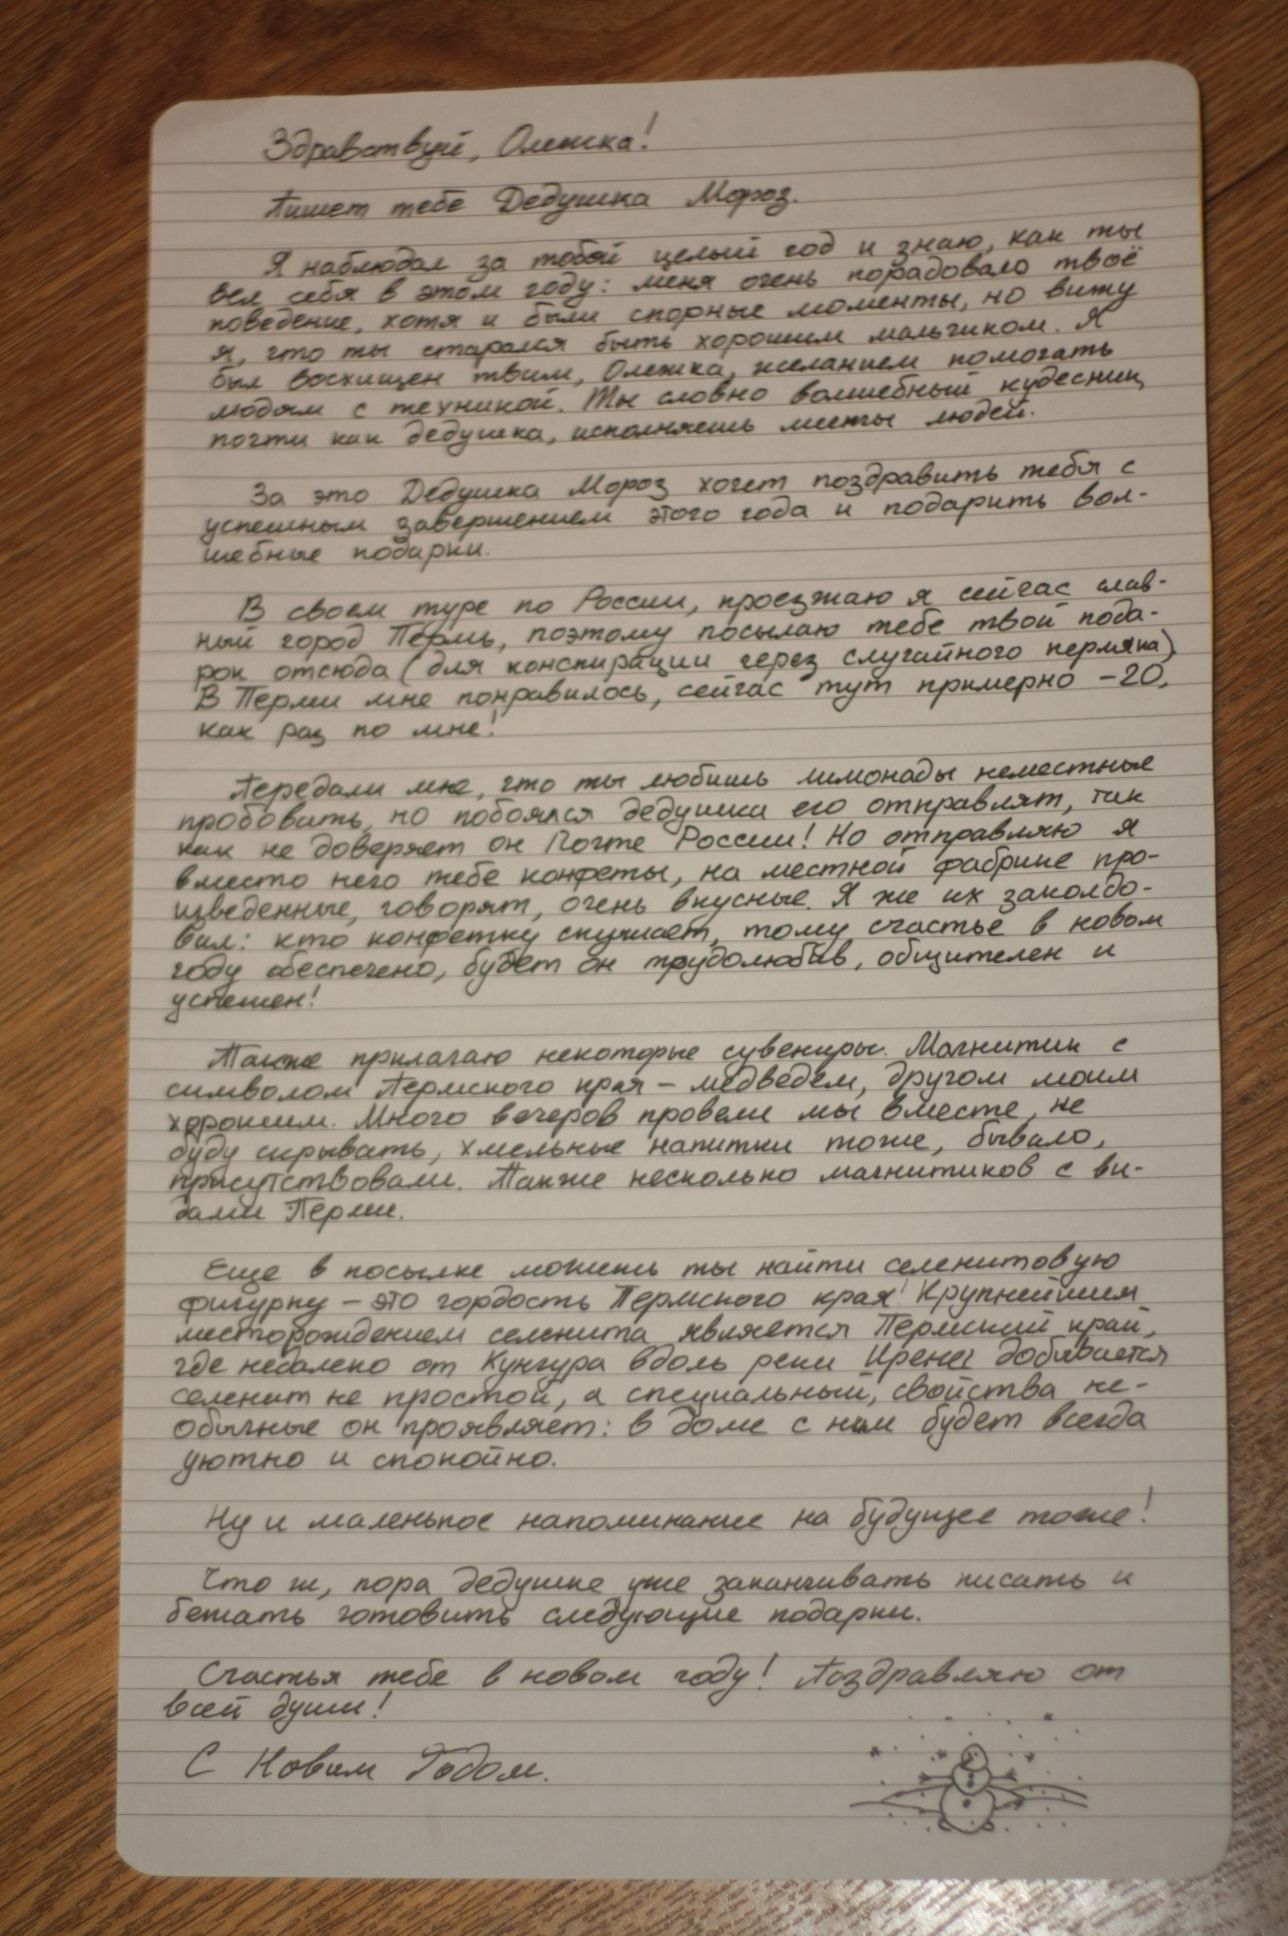 Здравствуй, Олежка!
Пишет тебе Дедушка Мороз.
Я наблюдал за тобой целый год и знаю, как ты
вел себя в этом году: меня очень порадовало твоё
поведение, хотя и были спорные моменты, но вижу
я, что ты старался быть хорошим мальчиком. Я
был восхищен твим, Олежка, желанием помогать
людям с техникой. Ты словно волшебный кудесник,
почти как дедушка, исполняешь мечты людей.
За это Дедушка Мороз хочет поздравить тебя с
успешным завершением этого года и подарить вол-
шебные подарки.
В своем туре по России, проезжаю я сейчас слав-
ный город Пермь, поэтому посылаю тебе твой пода-
рок отсюда (для конспирации через случайного пермяка).
В Перми мне понравилось, сейчас тут примерно -20,
как раз по мне!
Передали мне, что ты любишь лимонады неместные
пробовать, но побоялся дедушка его отправлят, так
как не доверяет он Почте России! Но отправляю я
вместо него тебе конфеты, на местной фабрике про-
изведенные, говорят, очень вкусные. Я же их заколдо-
вал: кто конфетку скушает, тому счастье в новом
году обеспечено, будет он трудолюбив, общителен и
успешен!
Также прилагаю некоторые сувениры. Магнитик с
символом Пермского края - медведем, другом моим
хорошим. Много вечеров провели мы вместе, не
буду скрывать, хмельные напитки тоже, бывало,
присутствовали. Также несколько магнитиков с ви-
дами Перми.
Еще в посылке можешь ты найти селенитовую
фигурку - это гордость Пермского края! Крупнейшим
месторождением селенита является Пермский край,
где недалеко от Кунгура вдоль реки Ирень добывается
селенит не простой, а специальный, свойства не-
обычные он проявляет: в доме с ним будет всегда
уютно и спокойно.
Ну и маленькое напоминание на будущее тоже!
Что ж, пора дедушке уже заканчивать писать и
бежать готовить следующие подарки.
Счастья тебе в новом году! Поздравляю от
всей души!
С Новым Годом.